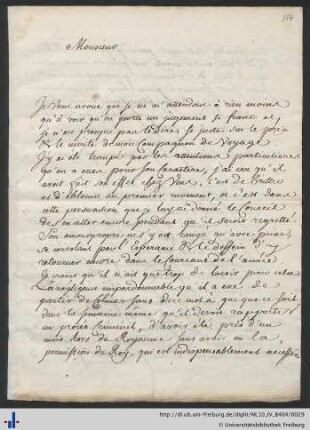 Monsieur
Je Vous avoue que je ne m'attendois à rien moins
qu'à voir qu'on porte un jugement si franc et
je n'ose presque pas le dire si juste sur le prix
& le merite de mon Compagnon de Voyage
J'y ai eté trompé par les attentions particulieres
qu'on a eues pour son Caractère, j'ai cru qu'il
avoit fait son effet chez Vous, c'est de frapper
et d'eblouir au premier moment, et c'est dans
cette persuasion que je lui ai donné le Conseil
de s'en aller encore pendant qu'il seroit regretté.
Son amour propre ne s'y est rangé qu'avec peine,
se consolant par l'Esperance & le dessein d'y
retourner encore dans le courant de l'année
Je crains qu'il n'ait que trop de loisir pour cela.
La négligence impardonnable qu'il a eue de
partir de Colmar sans dire mot à que que ce soit
dans la semaine même qu'il devoit rapporter
un procès Criminel, d'avoir été près d'un
mois hors du Royaume sans avoir eu la
permission du Roy, qui est indispensablement necessaire
http://dl.ub.uni-freiburg.de/diglit/NL10_IV_B404/0029
© Universitätsbibliothek Freiburg